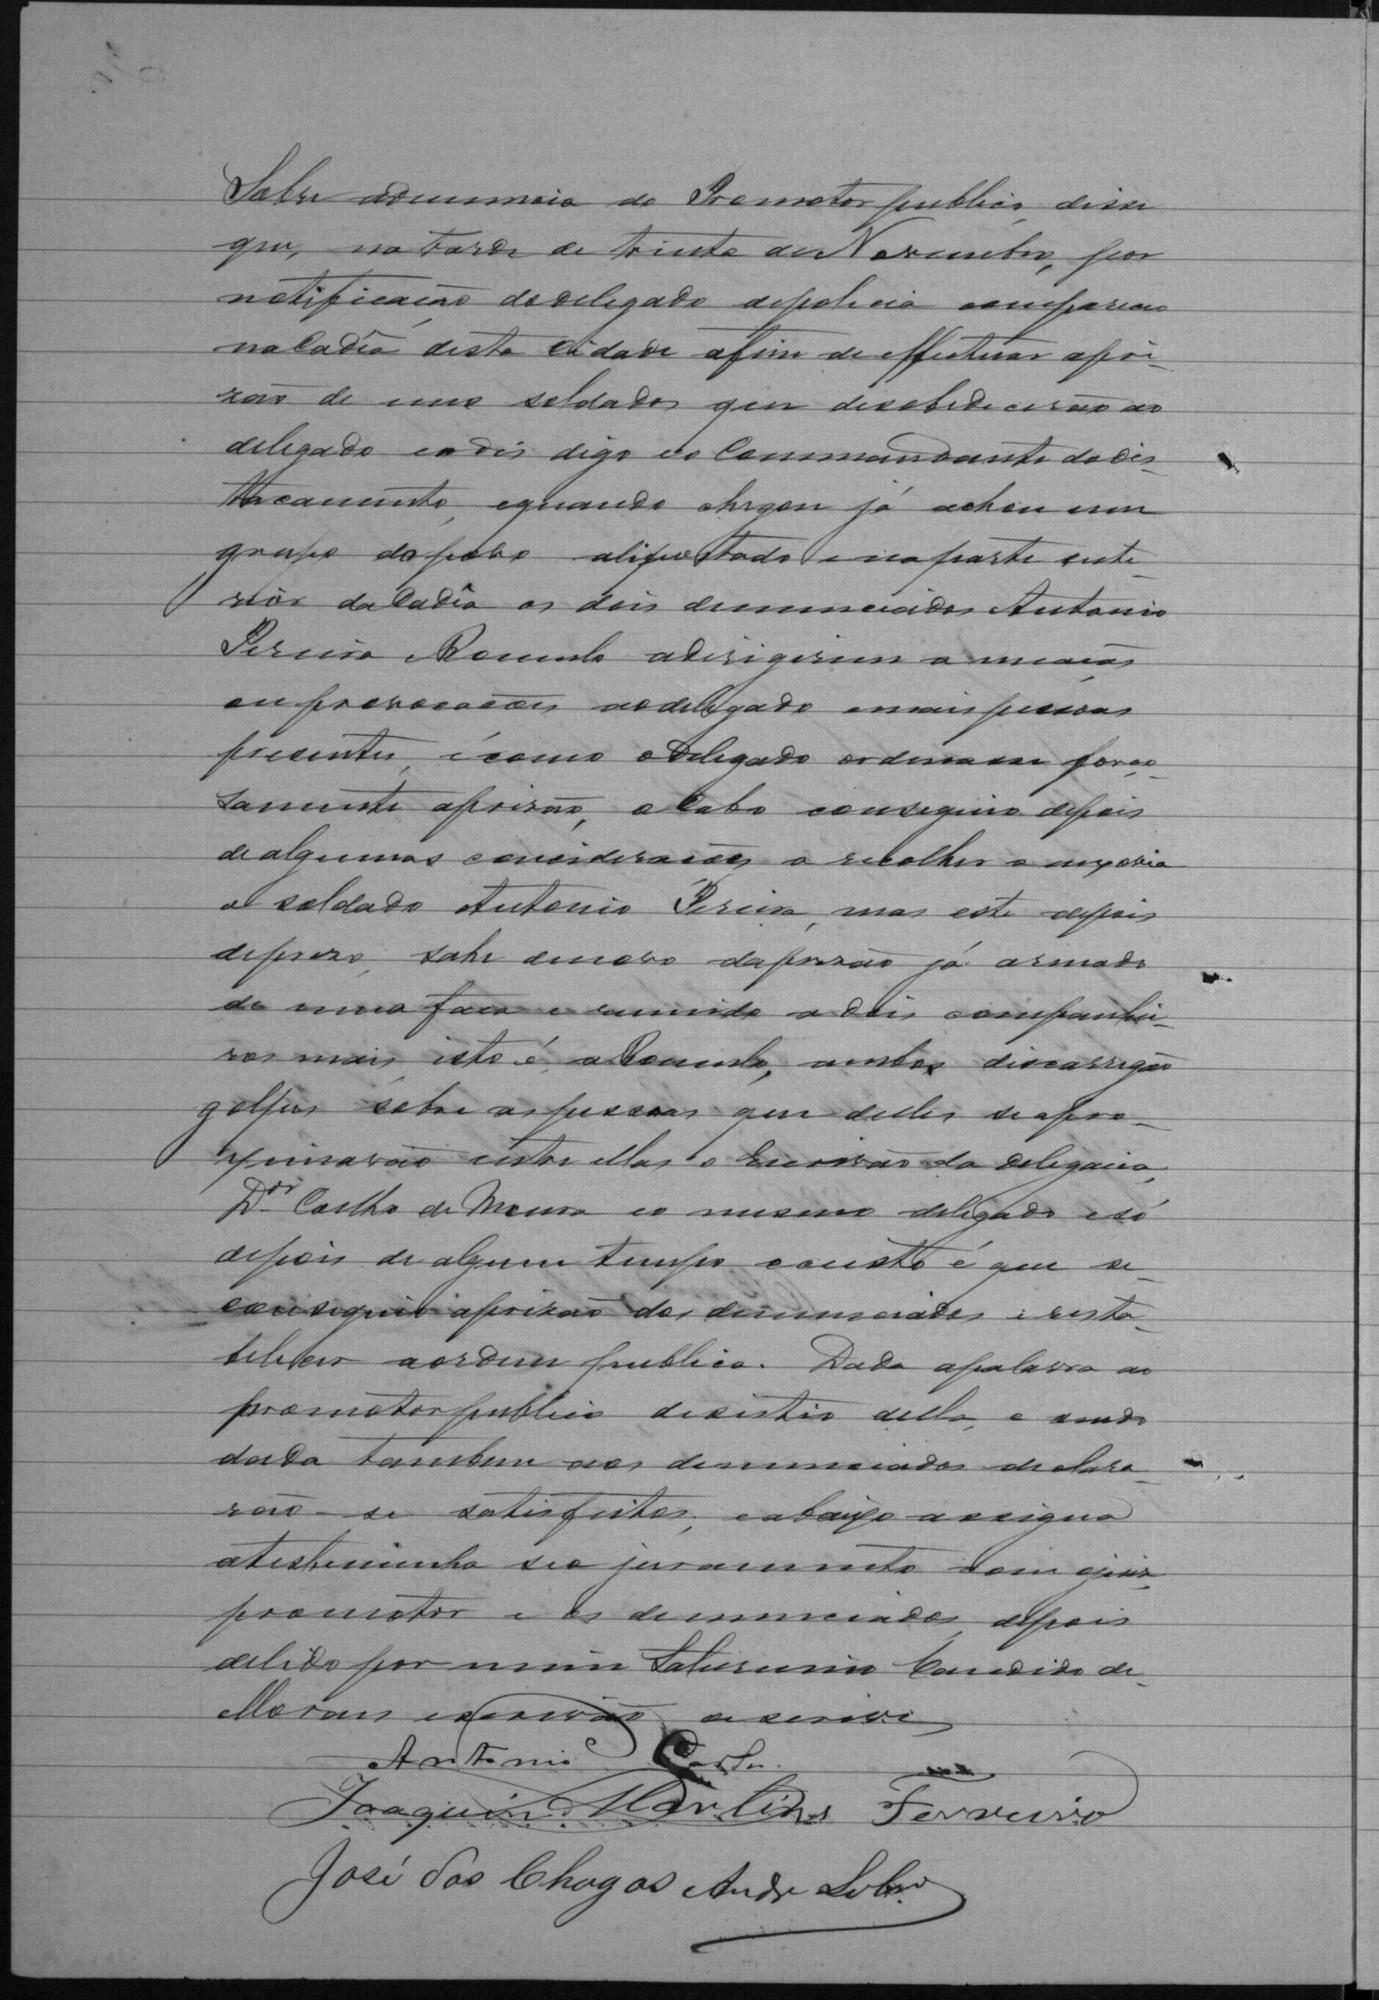 Sobre adenuncia do Promotor publico, disse
que, na tarde de trinta de Novembro, por
notificação do delegado depolicia compareceu
na Cadêa desta Cidade afim de effectuar apri-
zão de uns soldados que desobedecerão ao
delegado eodis digo eo Commandante do des-
tacamento, equando chegou já achou um
grupo depovo alipostado e naparte inte-
rior da Cadêa os dois denunciados Antonio
Pereira Romulo adirigirem ameaças
e provocações aodelegado emais pessoas
presentes, e como o Delegado ordenasse força-
damente aprizão, o Cabo conseguio depois
de algumas considerações a recolher a
o soldado Antonio Pereira, mas este depois
deprezo, sahe denovo daprizão já armado
de uma faca e reunido a dois companhei-
ros mais, isto é, a Romulo, ambos discarregão
golpes sobre aspessoas que delles seapro-
ximavão entre ellas o Escrivão da delegacia,
Dor Coelho de Moura eo mesmo delegado esó
depois de algum tempo ecusto é que se-
conseguio aprizão dos denunciados e resta-
belecer aordem publica. Dada apalavra ao
promotorpublico desistio della, e sendo
dada tambem aos denunciados declara-
rão-se satisfeitos, eabaixo assigna
atestemunha seo juramento com ojuiz,
promotor e os denunciados, depois
delido por mim Saturnino Candido de
Moraes escrivão oescrivi
Antonio
Joaquim Martins Ferreira
José das Chagas Andr Lobo